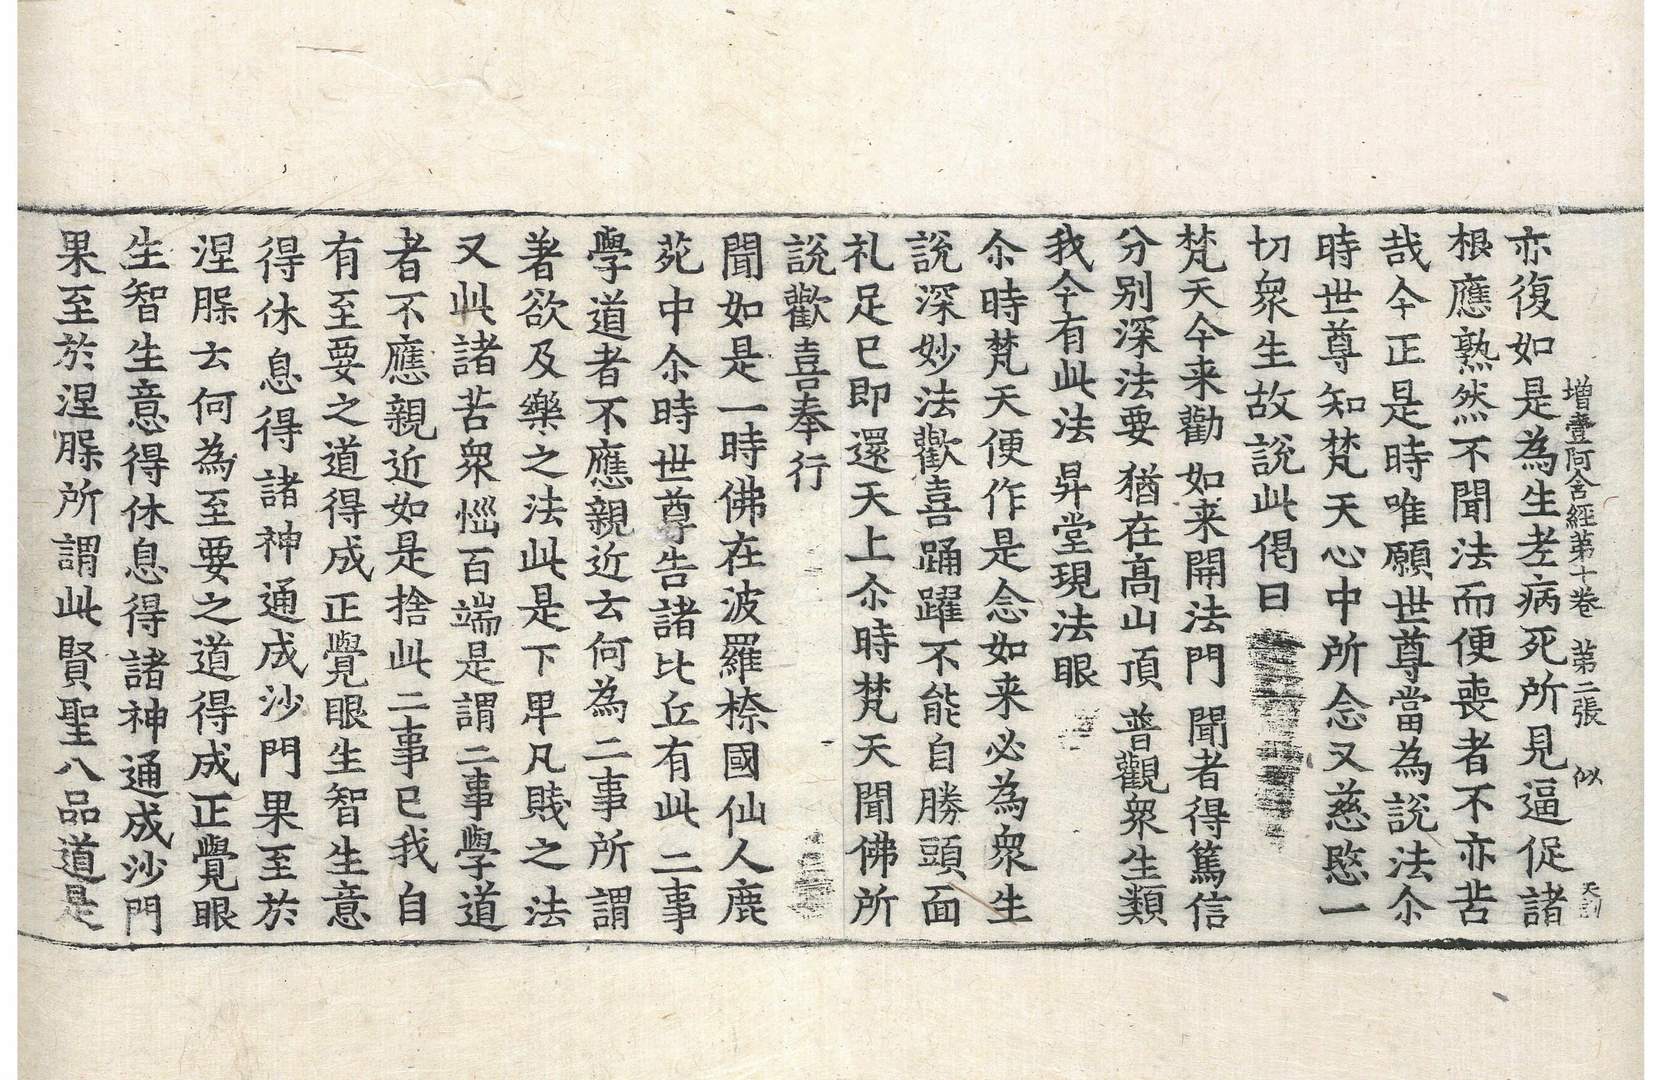 增壹阿含經第十卷　第二張　似
亦復如是為生老病死所見逼促諸
根應熟然不聞法而便喪者不亦苦
哉今正是時唯願世尊當為說法尒
時世尊知梵天心中所念又慈愍一
切衆生故說此偈曰
梵天今来勸　如来開法門　聞者得篤信
分別深法要　猶在高山頂　普觀衆生類
我今有此法　昇堂現法眼
尒時梵天便作是念如来必為衆生
說深妙法歡喜踊躍不能自勝頭面
礼足已即還天上尒時梵天聞佛所
說歡喜奉行
聞如是一時佛在波羅㮈國仙人鹿
苑中尒時世尊告諸比丘有此二事
學道者不應親近云何為二事所謂
著欲及樂之法此是下卑凡賤之法
又此諸苦衆惱百端是謂二事學道
者不應親近如是捨此二事已我自
有至要之道得成正覺眼生智生意
得休息得諸神通成沙門果至於
涅槃云何為至要之道得成正覺眼
生智生意得休息得諸神通成沙門
果至於涅槃所謂此賢聖八品道是